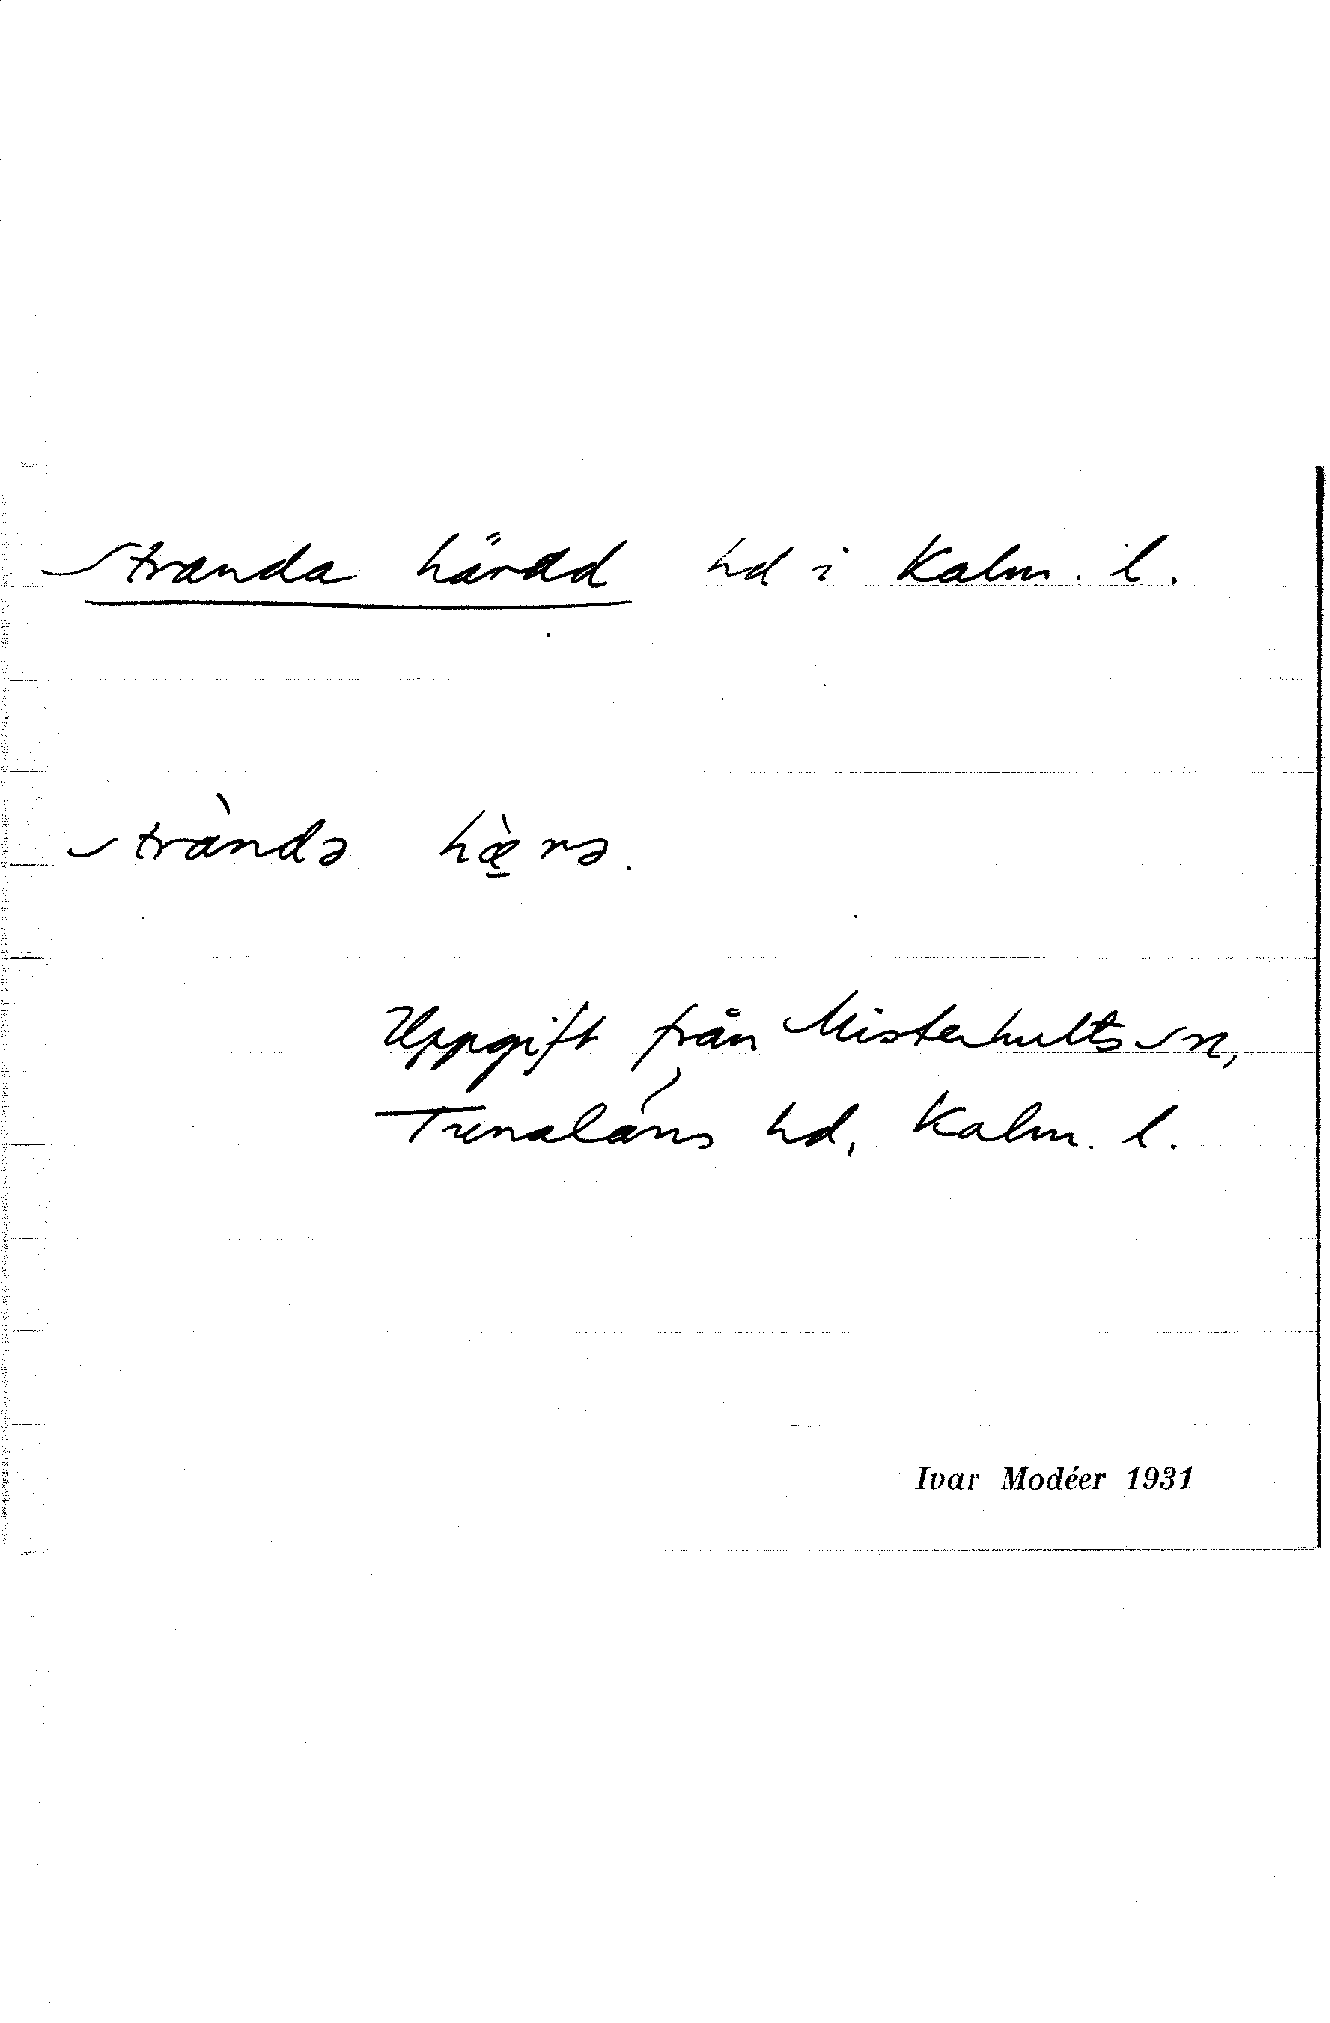 Stranda härad hd i Kalm. l.
stràndə hæ̱̀rə.
Uppgift från Misterhults sn,
Tunaläns hd, Kalm. l.
Ivar Modéer 1931